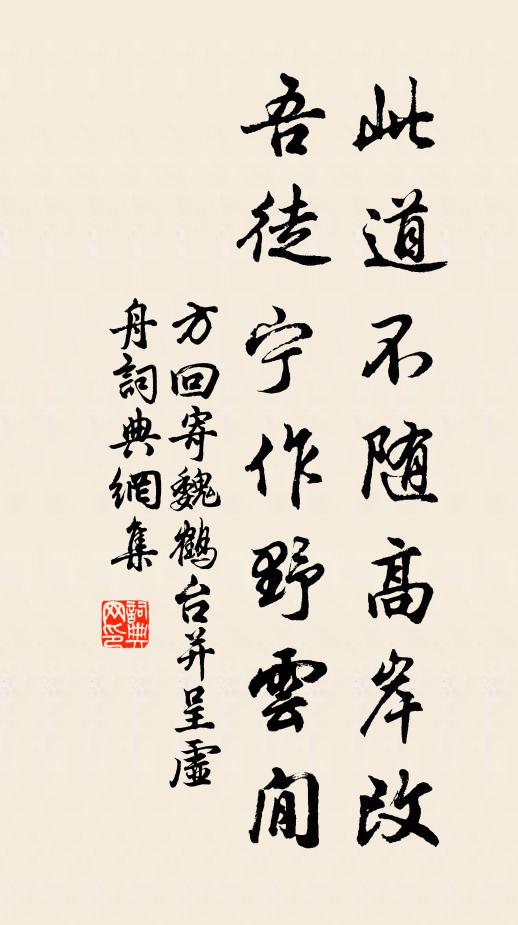 此道不随高岸改
吾徒宁作野雲閒
方回寄魏鶴台并呈虛
舟詞典網集
詞典网印